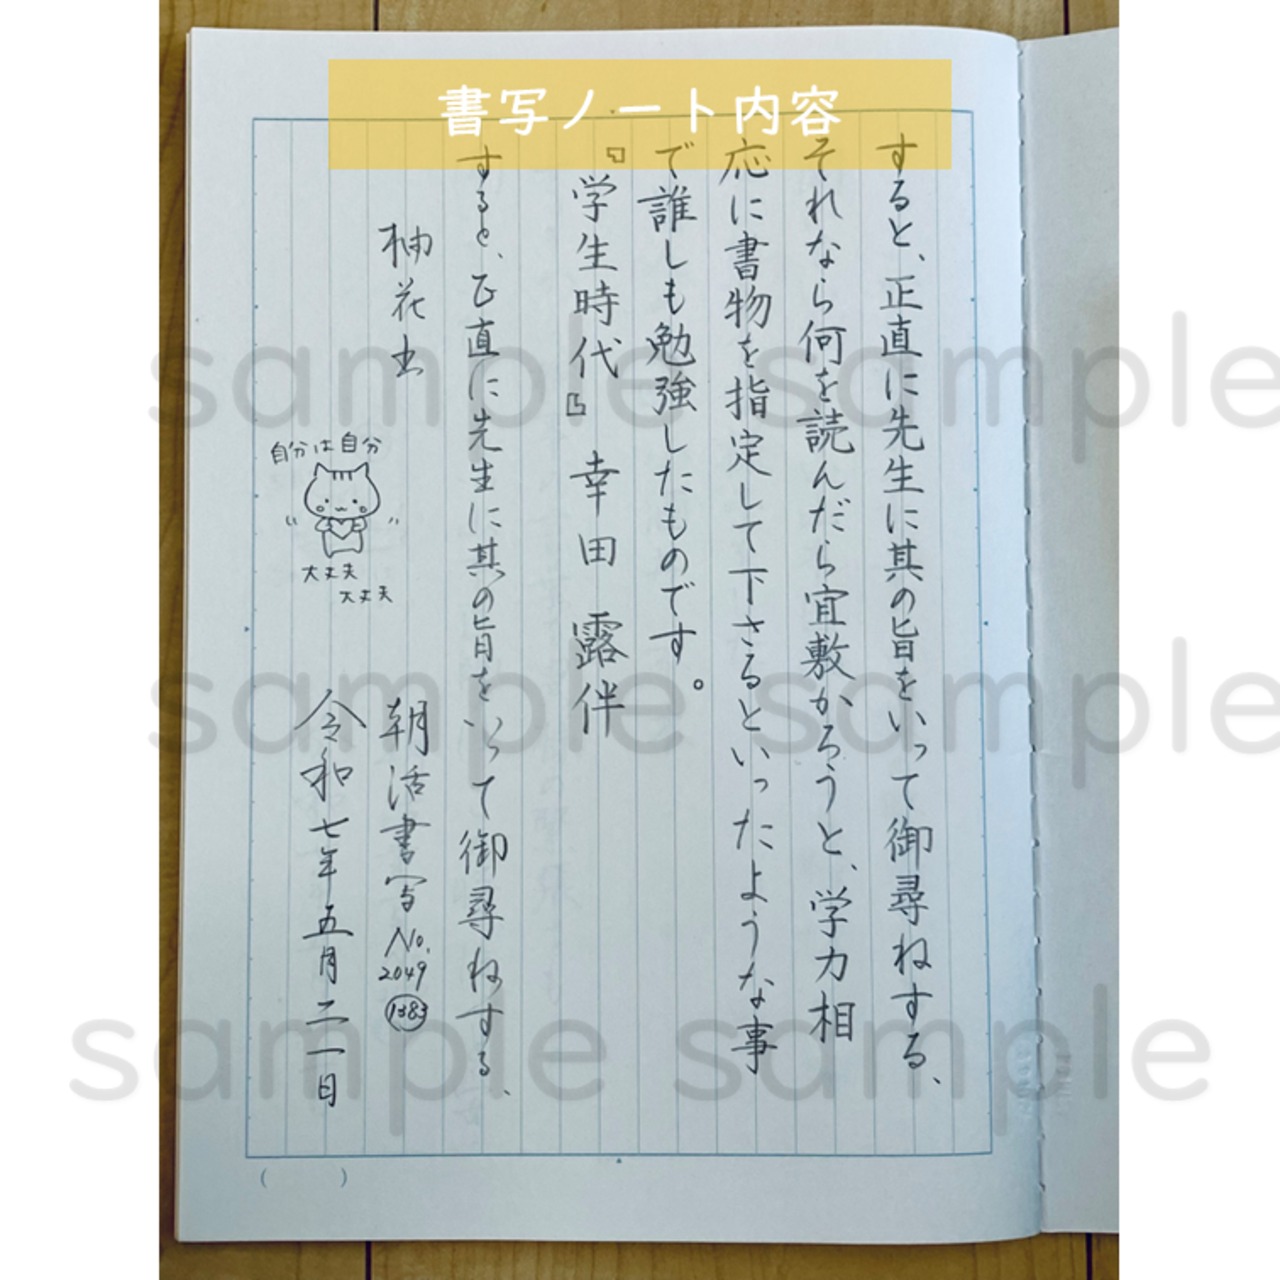 書写ノート内容
すると、正直に先生に其の旨をいって御尋ねする、
それなら何を読んだら宜敷かろうと、学力相
応に書物を指定して下さるといったような事
で誰しも勉強したものです。
『学生時代』 幸田 露伴
すると、正直に先生に其の旨をいって御尋ねする、
柚花出
朝活書写 No.
2049
1383
自分は自分
大丈夫
大丈夫
令和七年五月二一日
sample sample
sample sample
sample sample